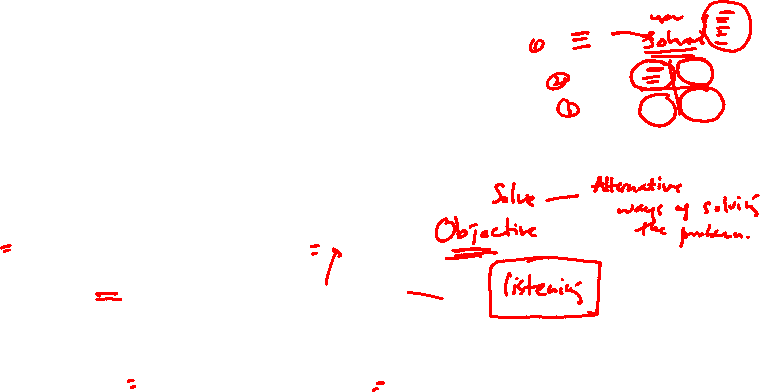 you
① solved
②
③
Solve — Alternative
ways of solving
the problem.
Objective
listening